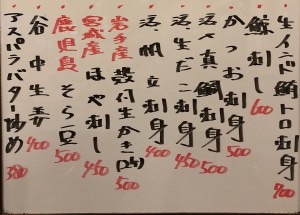 生インド鮪トロ刺身 900
鯨刺し 600
かつお刺身 500
活〆真鯛刺身 500
活生だこ刺身 450
活帆立刺身 400
岩手産殻付生かき(2ヶ) 500
宮城産ほや刺し 450
鹿児島そら豆 500
谷中生姜 400
アスパラバター炒め 380